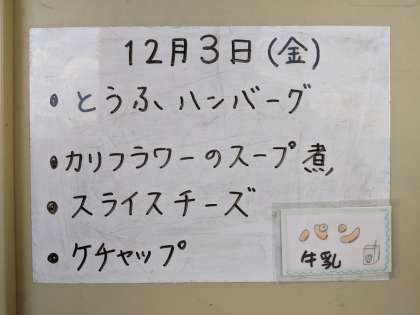 12月3日(金)
• とうふハンバーグ
• カリフラワーのスープ煮
• スライスチーズ
• ケチャップ
パン
牛乳